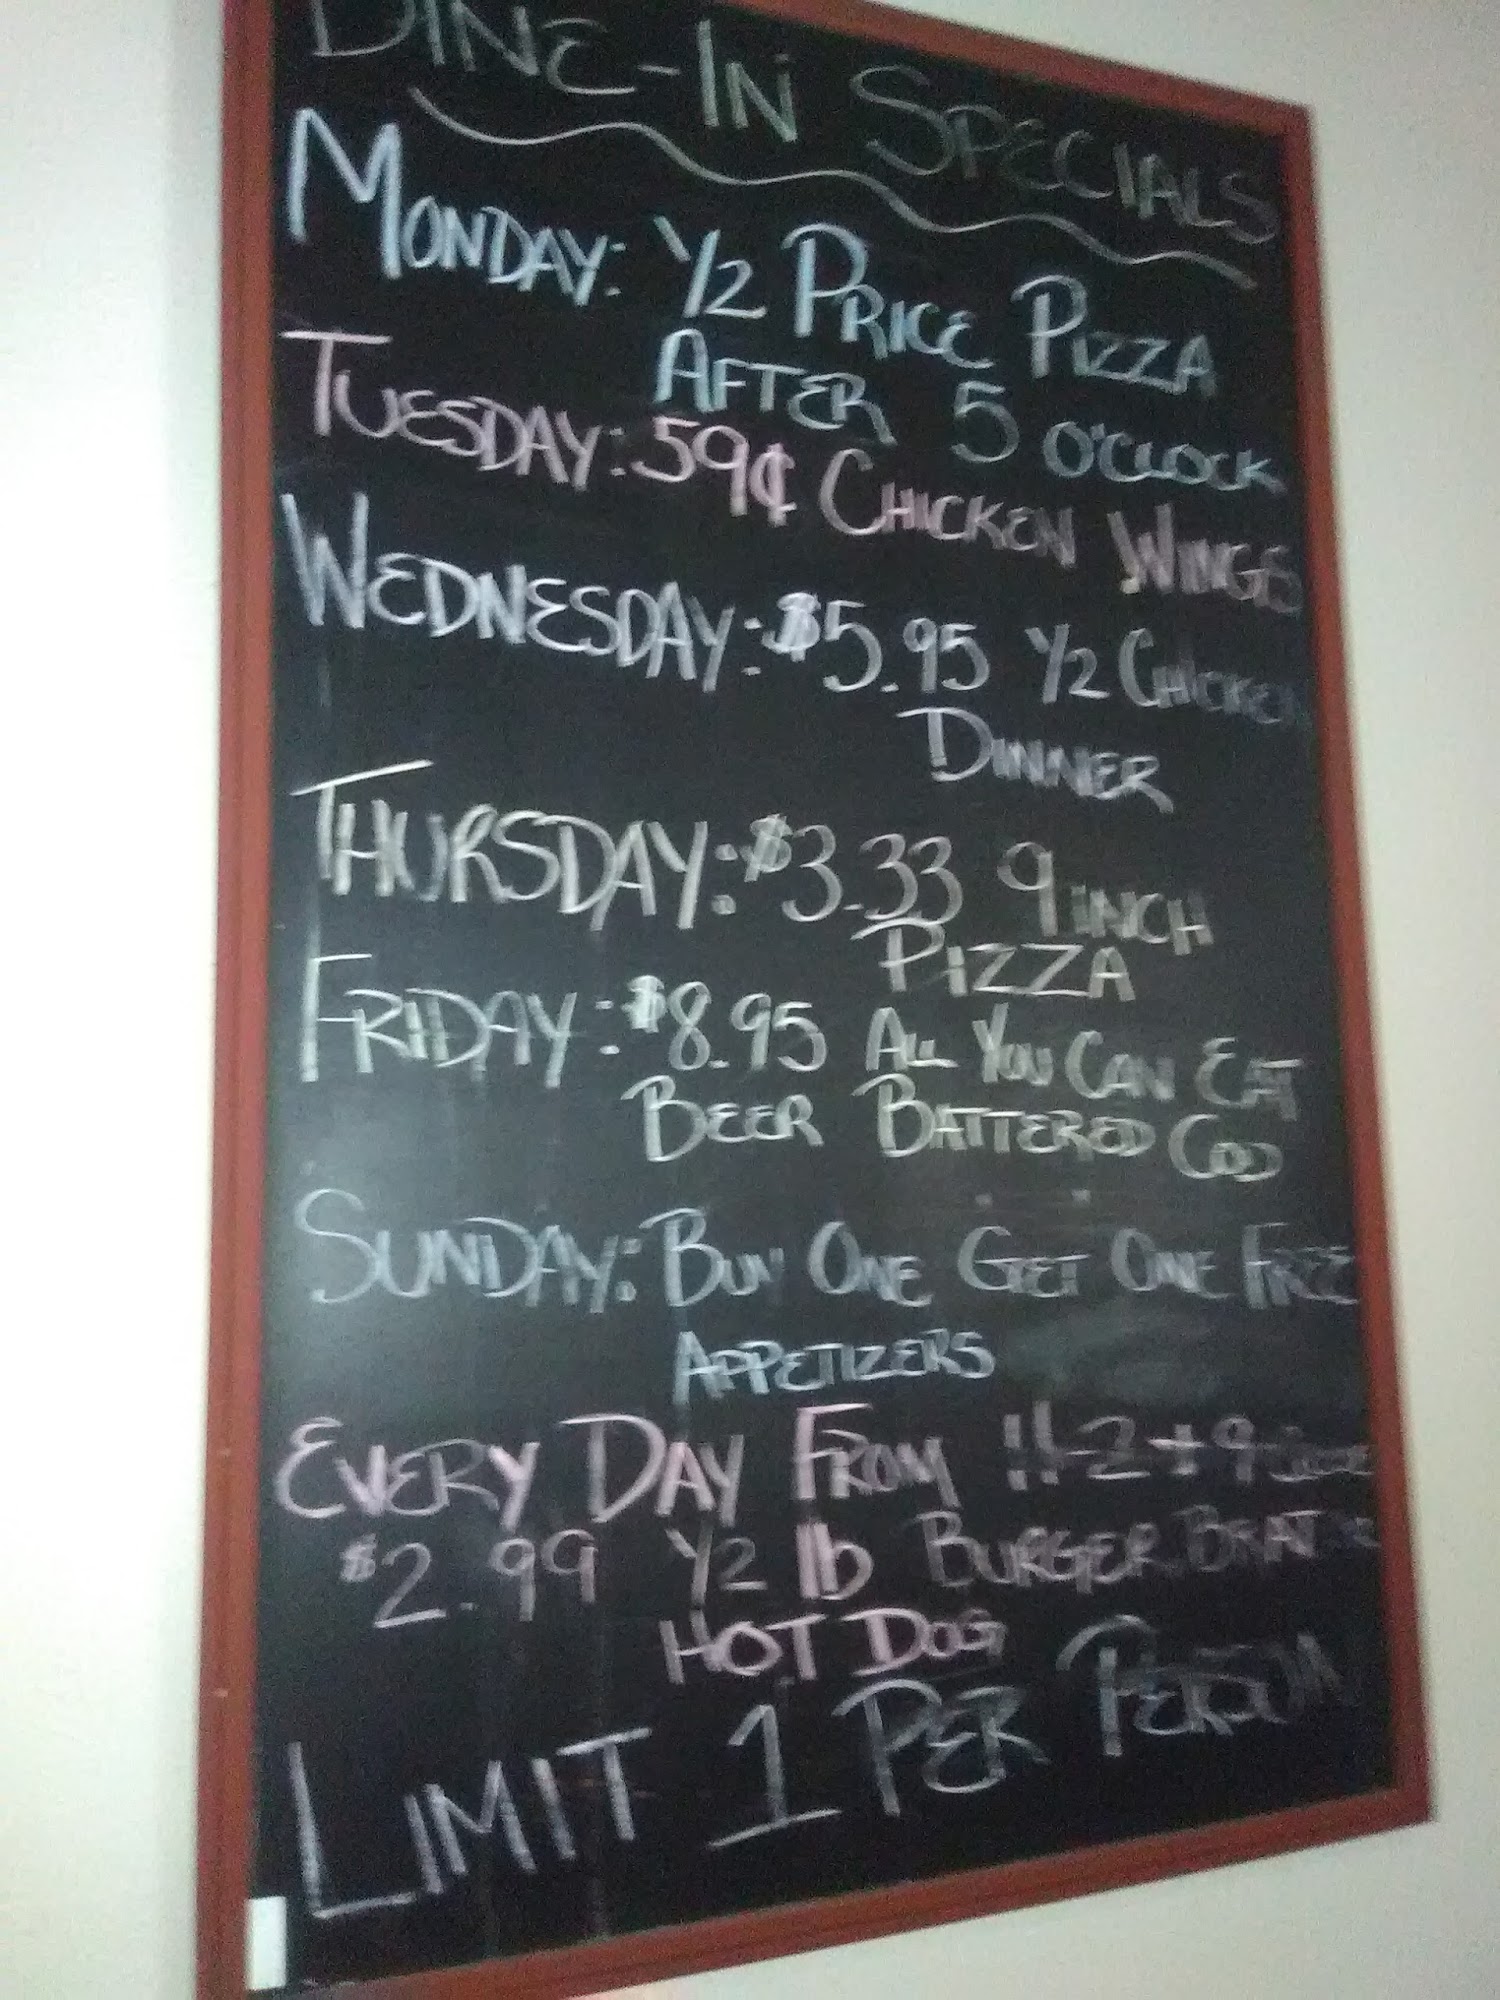 DINE-IN SPECIALS
MONDAY: 1/2 PRICE PIZZA
AFTER 5 O'CLOCK
TUESDAY: 59¢ CHICKEN WINGS
WEDNESDAY: $5.95 1/2 CHICKEN
DINNER
THURSDAY: $3.33 9 INCH
PIZZA
FRIDAY: $8.95 ALL YOU CAN EAT
BEER BATTERED COD
SUNDAY: BUY ONE GET ONE FREE
APPETIZERS
EVERY DAY FROM 11-2 + 9
$2.99 1/2 lb BURGER BRAT
HOT DOG
LIMIT 1 PER PERSON